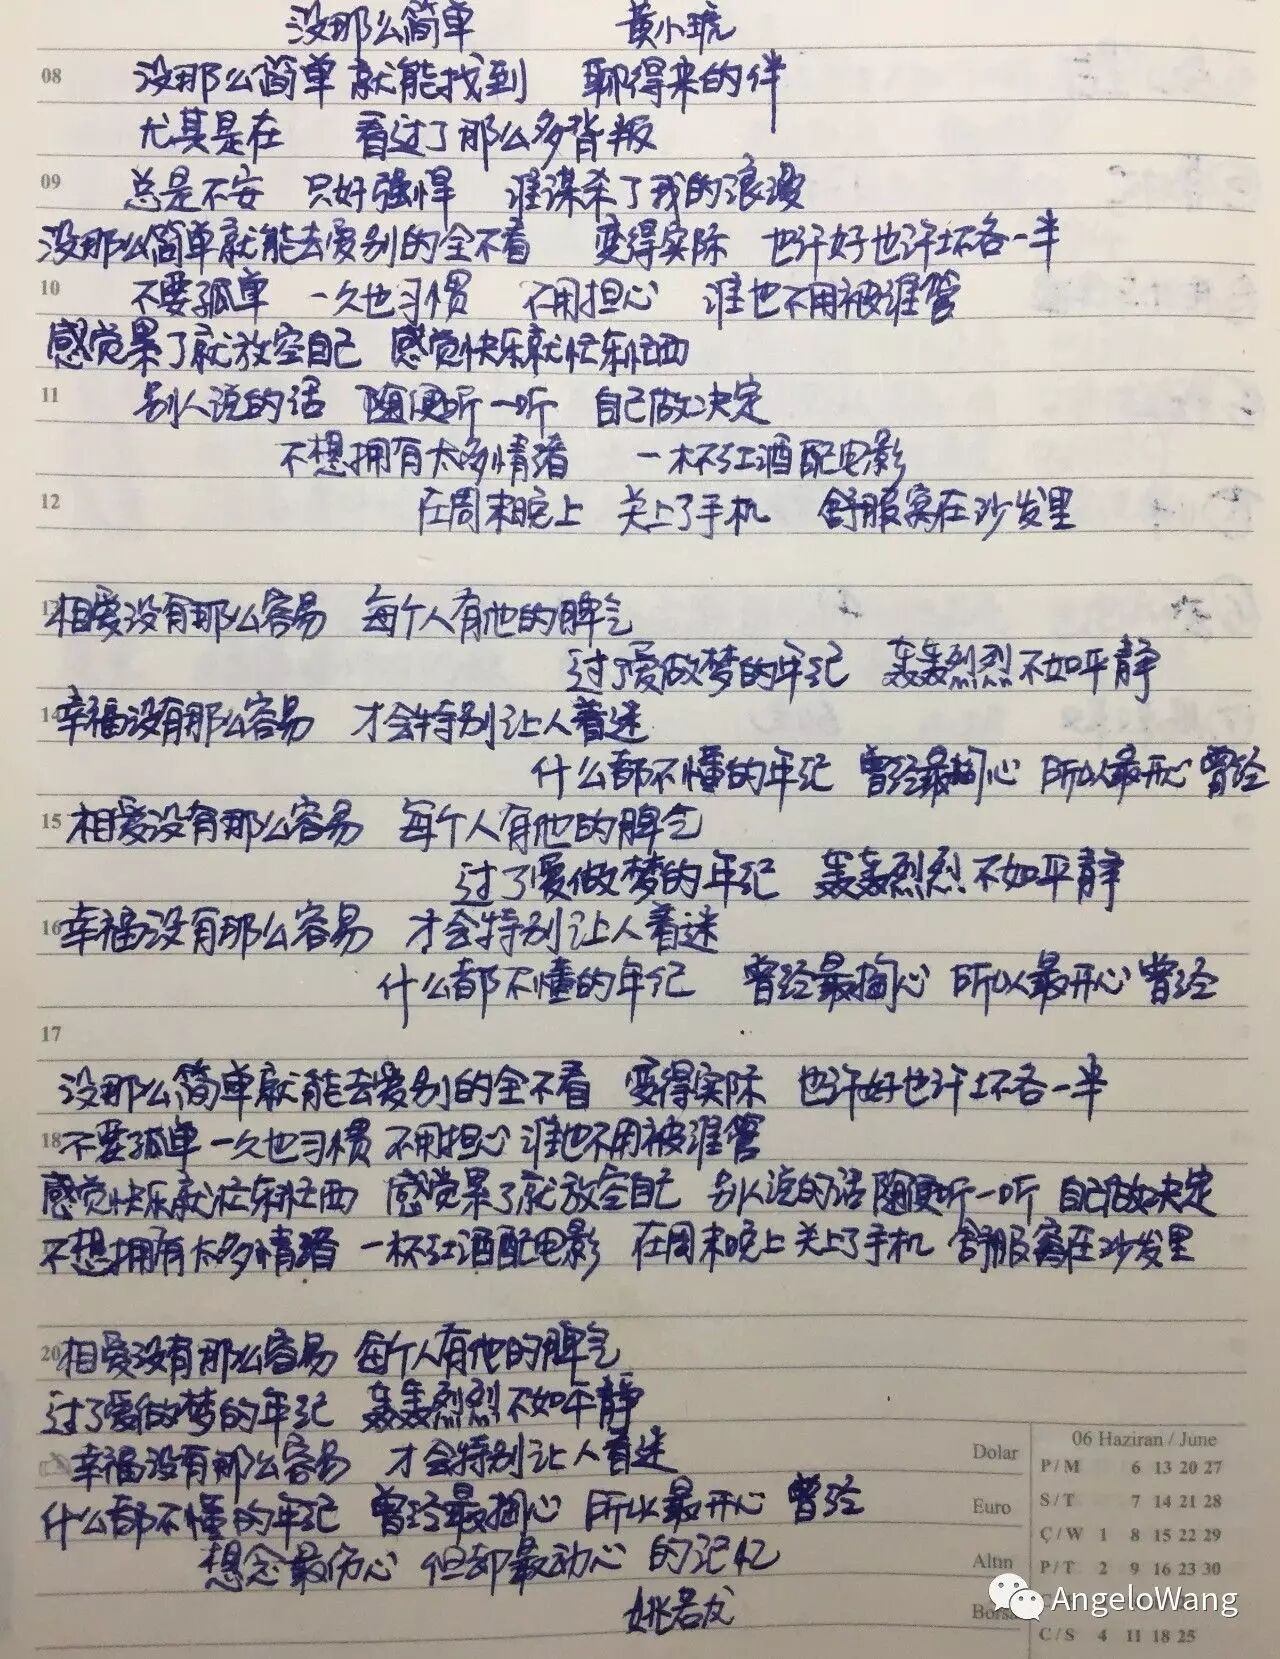 没那么简单 黄小琥
08 没那么简单 就能找到 聊得来的伴
尤其是在 看过了那么多背叛
09 总是不安 只好强悍 谁谋杀了我的浪漫
没那么简单就能去爱别的全不看 变得实际 也许好也许坏各一半
10 不要孤单 一久也习惯 不用担心 谁也不用被谁管
感觉累了就放空自己 感觉快乐就忙东忙西
11 别人说的话 随便听一听 自己做决定
不想拥有太多情绪 一杯红酒配电影
12 在周末晚上 关上了手机 舒服窝在沙发里
13 相爱没有那么容易 每个人有他的脾气
过了爱做梦的年记 轰轰烈烈不如平静
14 幸福没有那么容易 才会特别让人着迷
什么都不懂的年纪 曾经最掏心 所以最开心曾经
15 相爱没有那么容易 每个人有他的脾气
过了爱做梦的年记 轰轰烈烈不如平静
16 幸福没有那么容易 才会特别让人着迷
什么都不懂的年纪 曾经最掏心 所以最开心曾经
17
没那么简单就能去爱别的全不看 变得实际 也许好也许坏各一半
18 不要孤单一久也习惯 不用担心 谁也不用被谁管
感觉快乐就忙东忙西 感觉累了就放空自己 别人说的话随便听一听 自己做决定
不想拥有太多情绪 一杯红酒配电影 在周末晚上关上了手机 舒服窝在沙发里
20 相爱没有那么容易 每个人有他的脾气
过了爱做梦的年记 轰轰烈烈不如平静
幸福没有那么容易 才会特别让人着迷
什么都不懂的年记 曾经最掏心 所以最开心 曾经
想念最伤心 但却最动心 的记忆
姚若龙
Dolar
Euro
Altın
Borsa
06 Haziran / June
P / M 6 13 20 27
S / T 7 14 21 28
Ç / W 1 8 15 22 29
P / T 2 9 16 23 30
C / S 4 11 18 25
AngeloWang